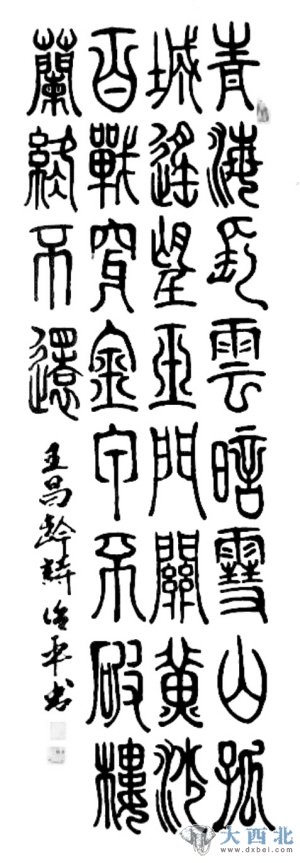 青海長雲暗雪山孤
城遙望玉門關黃沙
百戰穿金甲不破樓
蘭終不還
王昌齡詩 平书
大西北
www.dxbei.com